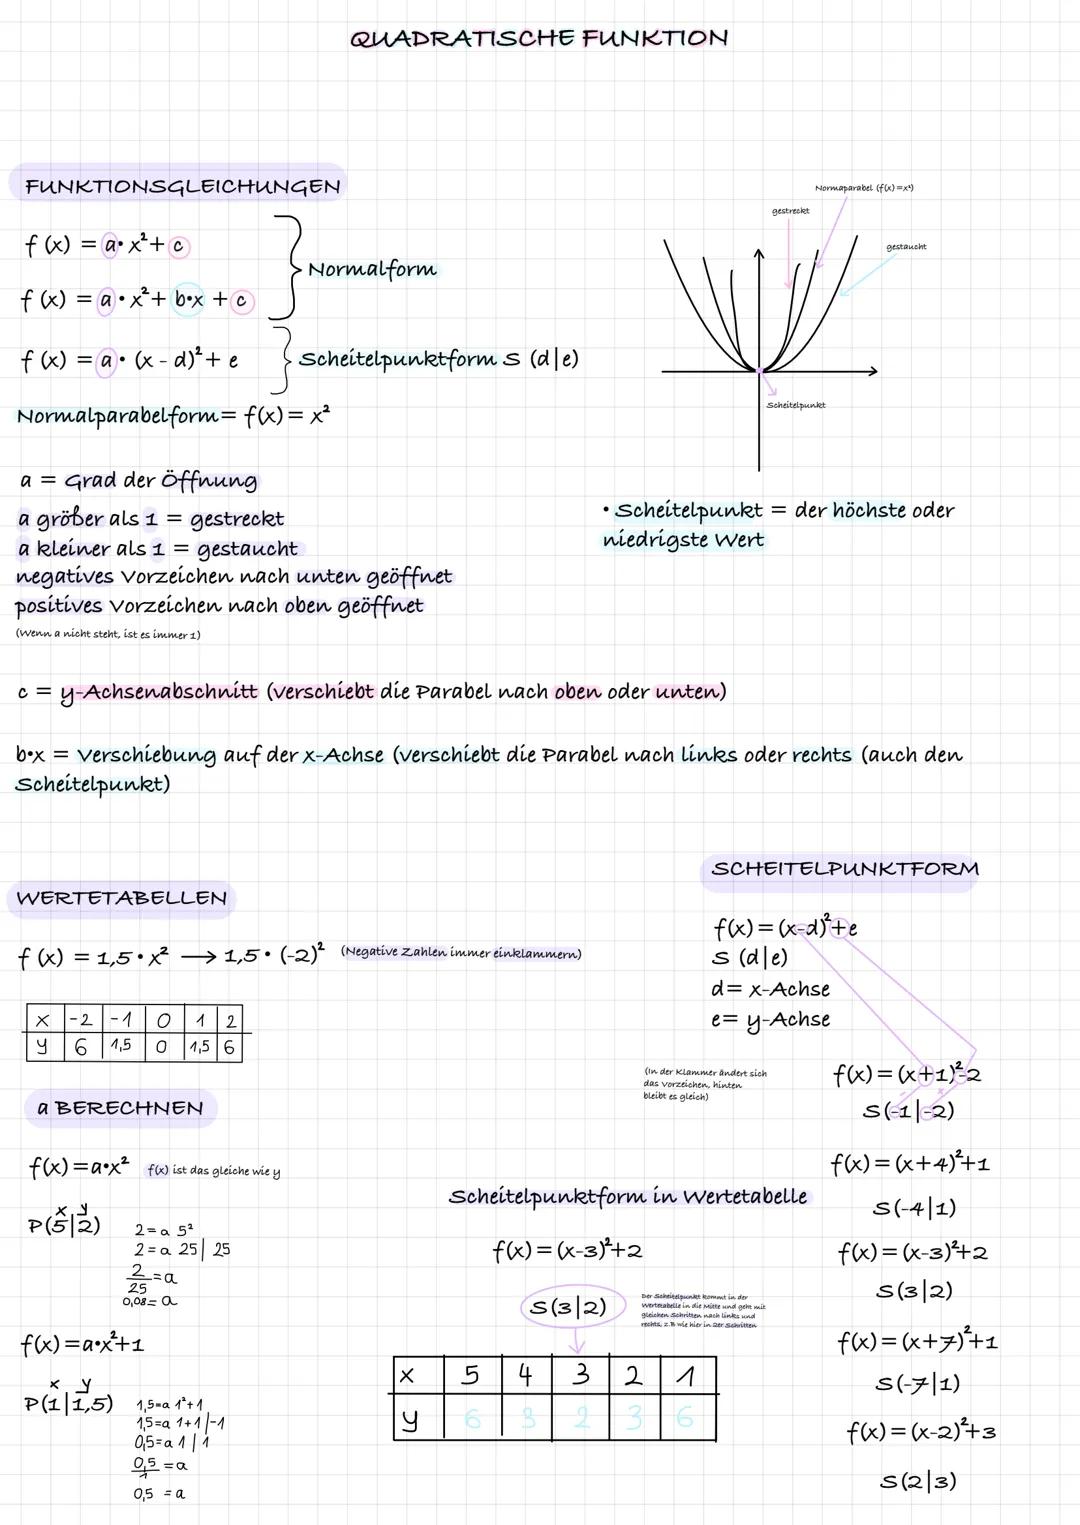 QUADRATISCHE FUNKTION
FUNKTIONSGLEICHUNGEN
f (x) = a• x²+ c
f (x) = a • x²+ b•x + c
Normalform
f (x) = a • (x - d)²+ e
Scheitelpunktform S (d|e)
Normalparabelform= f(x) = x²
Normaparabel (f(x) =x²)
gestreckt
gestaucht
Scheitelpunkt
a = Grad der Öffnung
a größer als 1 = gestreckt
a kleiner als 1 = gestaucht
negatives Vorzeichen nach unten geöffnet
positives Vorzeichen nach oben geöffnet
(Wenn a nicht steht, ist es immer 1)
• Scheitelpunkt = der höchste oder
niedrigste Wert
c = y-Achsenabschnitt (verschiebt die Parabel nach oben oder unten)
b•x = Verschiebung auf der x-Achse (verschiebt die Parabel nach links oder rechts (auch den
Scheitelpunkt)
WERTETABELLEN
f (x) = 1,5 • x² → 1,5 • (-2)² (Negative Zahlen immer einklammern)
x -2 -1 0 1 2
y 6 1,5 0 1,5 6
a BERECHNEN
f(x) = a•x² f(x) ist das gleiche wie y
x y
P(5|2)
2 = a 5²
2 = a 25 | 25
2
25
=a
0,08= a
f(x) = a•x²+1
x y
P(1|1,5)
1,5=a 1²+1
1,5=a 1+1 |-1
0,5=a 1 | 1
0,5
1
=a
0,5 = a
SCHEITELPUNKTFORM
f(x) = (x-d)²+e
S (d|e)
d= x-Achse
e= y-Achse
(In der Klammer ändert sich
das Vorzeichen, hinten
bleibt es gleich)
f(x) = (x+1)²-2
- +
S(-1|-2)
f(x) = (x+4)²+1
S(-4|1)
f(x) = (x-3)²+2
S(3|2)
f(x) = (x+7)²+1
S(-7|1)
f(x) = (x-2)²+3
S(2|3)
Scheitelpunktform in Wertetabelle
f(x) = (x-3)²+2
S(3|2)
Der Scheitelpunkt kommt in der
Wertetabelle in die Mitte und geht mit
gleichen Schritten nach links und
rechts, z.B wie hier in 1er Schritten
x 5 4 3 2 1
y 6 3 2 3 6